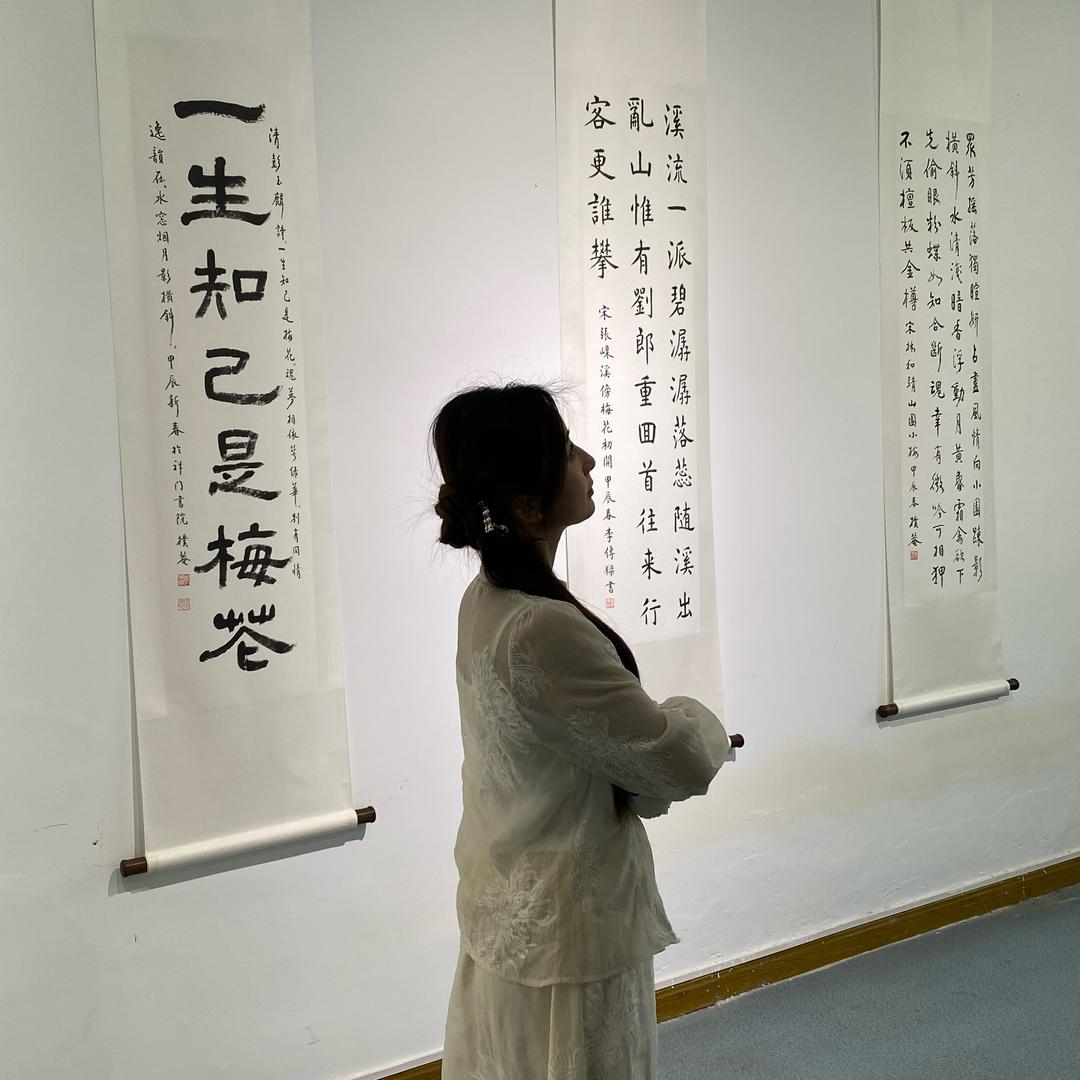 清彭玉麟詩一生知己是梅花魂夢相依萼綠華别有闲情
一生知己是梅花
逸韻在水窓烟月影橫斜甲辰新春於祥门書院樸菴
溪流一派碧潺潺落蕊随溪出
亂山惟有劉郎重囬首往来行
客更誰攀
宋張嵲溪傍梅花初開甲辰春李傳書
眾芳摇落獨暄妍占盡風情向小園疎影
橫斜水清淺暗香浮動月黄昏霜禽欲下
先偷眼粉蝶如知合斷魂幸有微吟可相狎
不須檀板共金樽宋林和靖山園小梅甲辰春樸菴